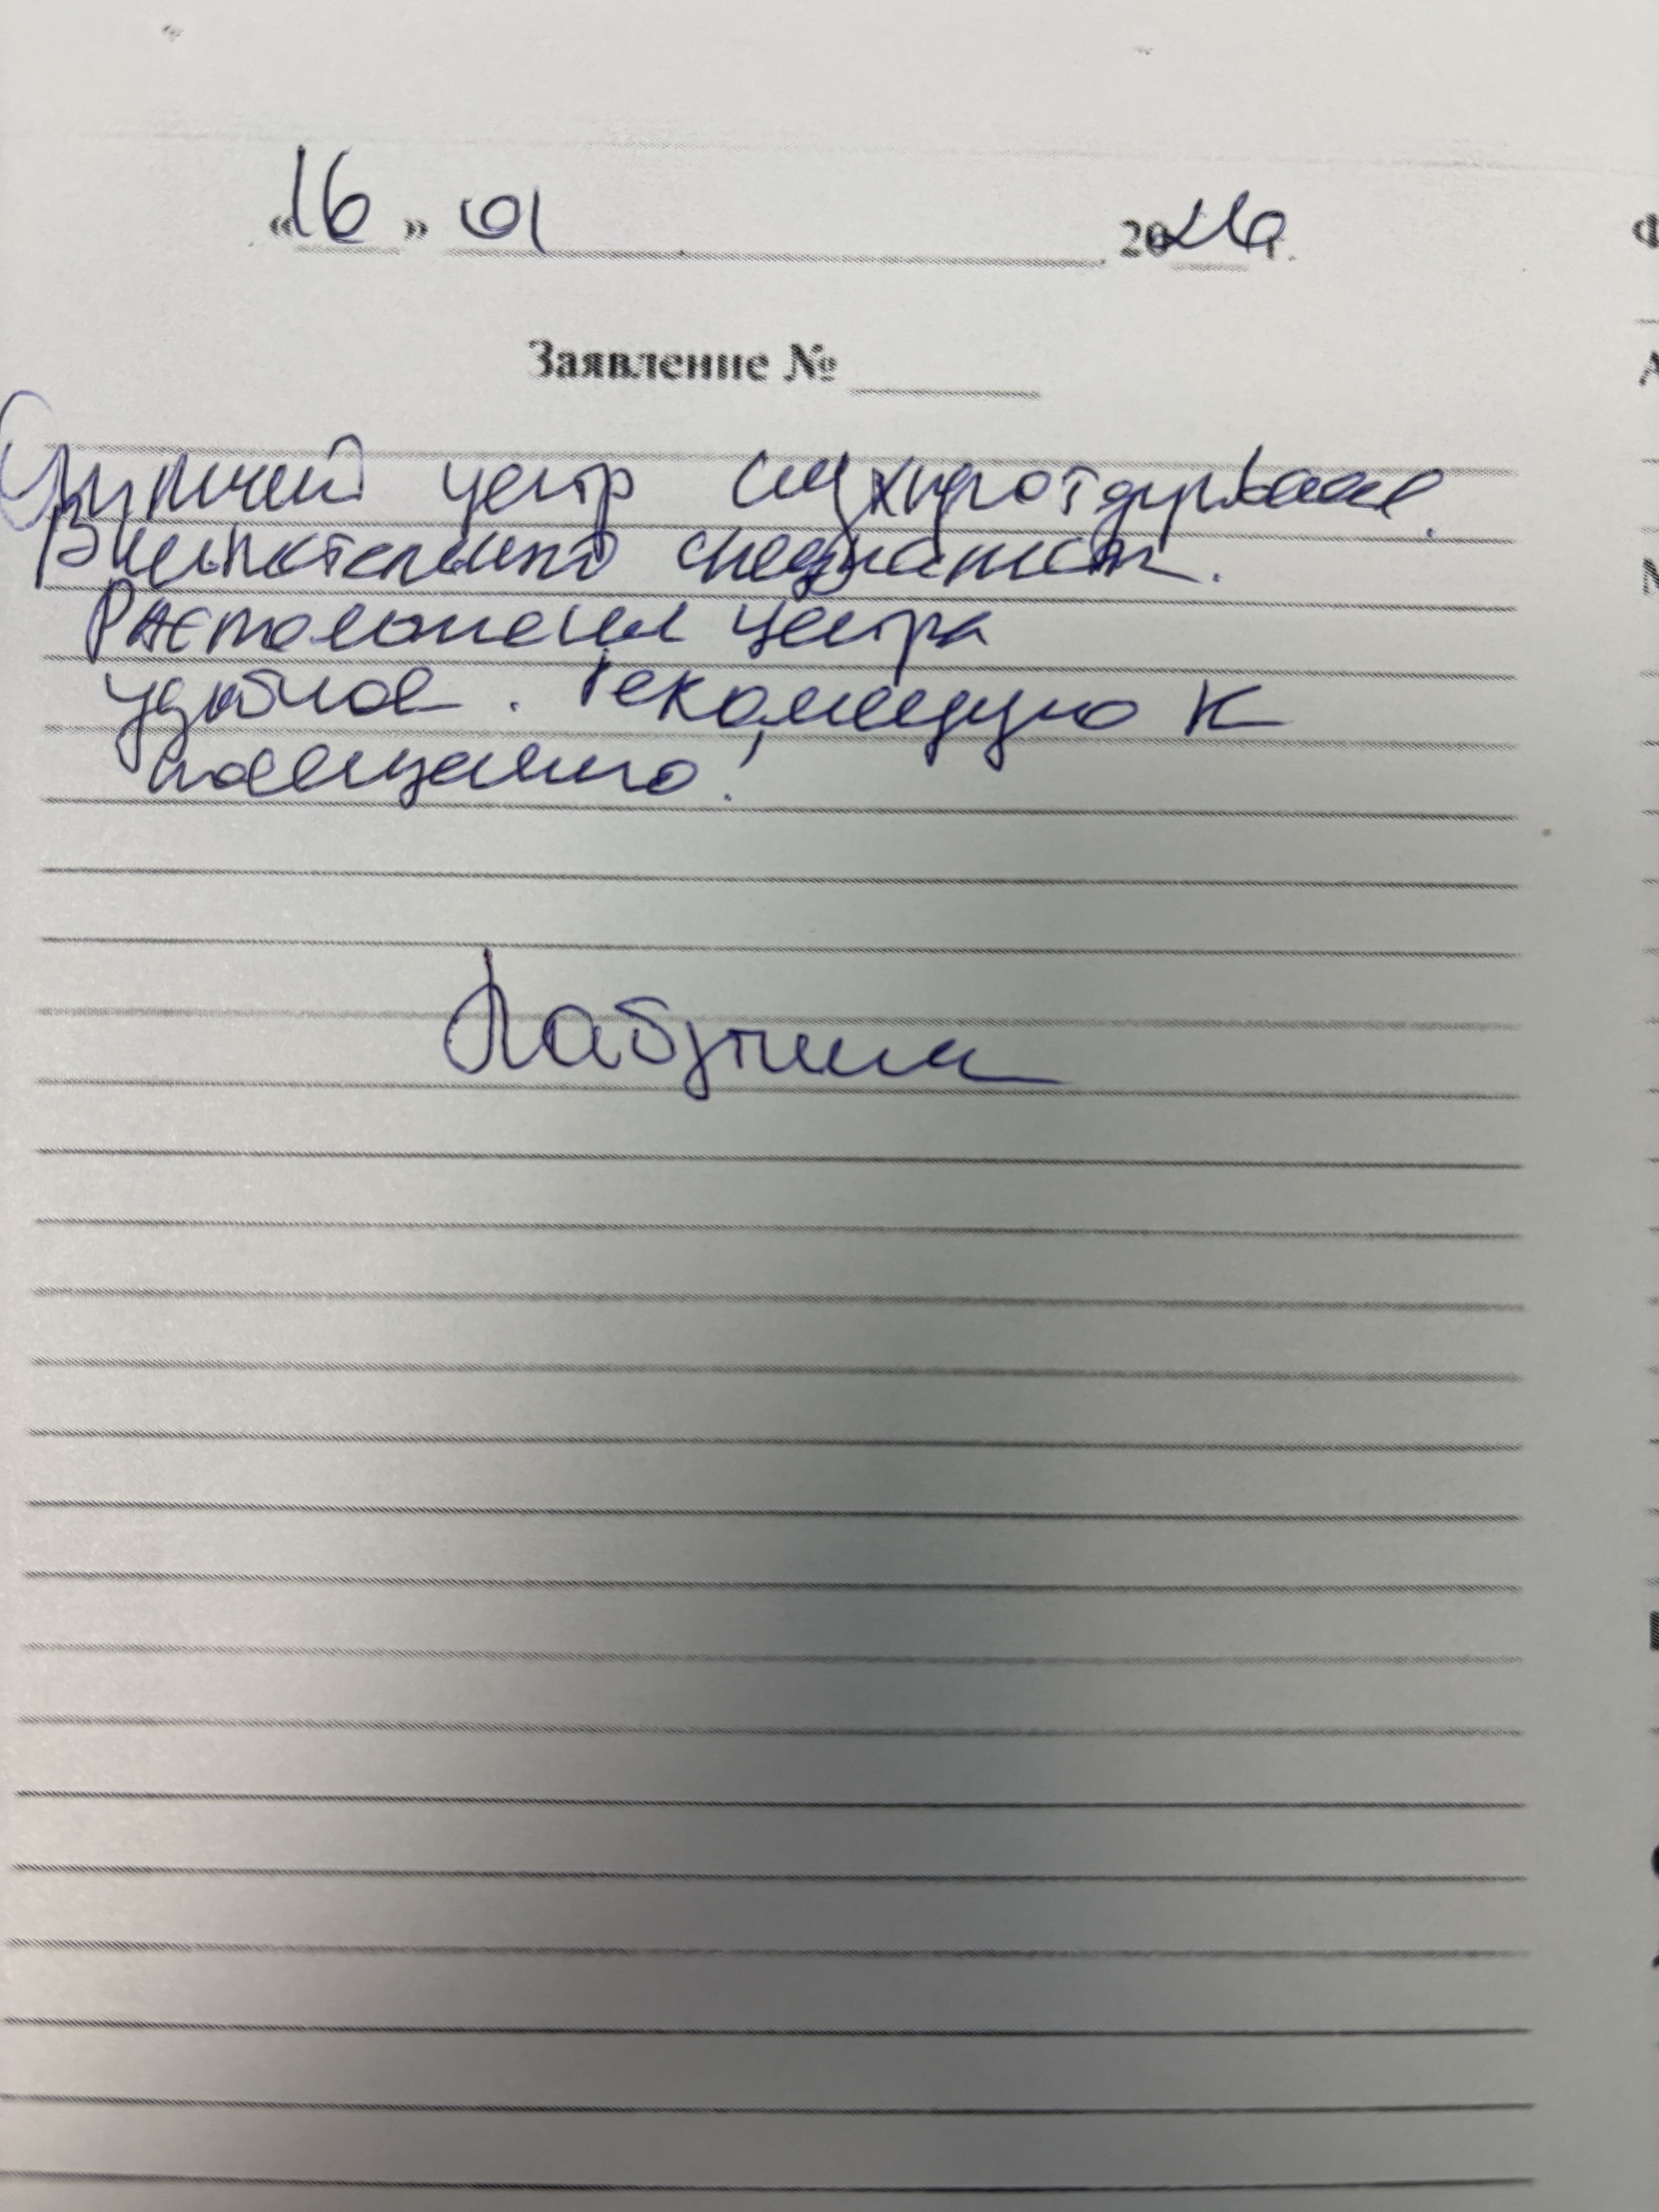 «16» 01 2026 г.
Заявление №
Лучший центр слухопротезирование.
Внимательный специалист.
Расположение центра
удобное. Рекомендую к
посещению!
Лабутина